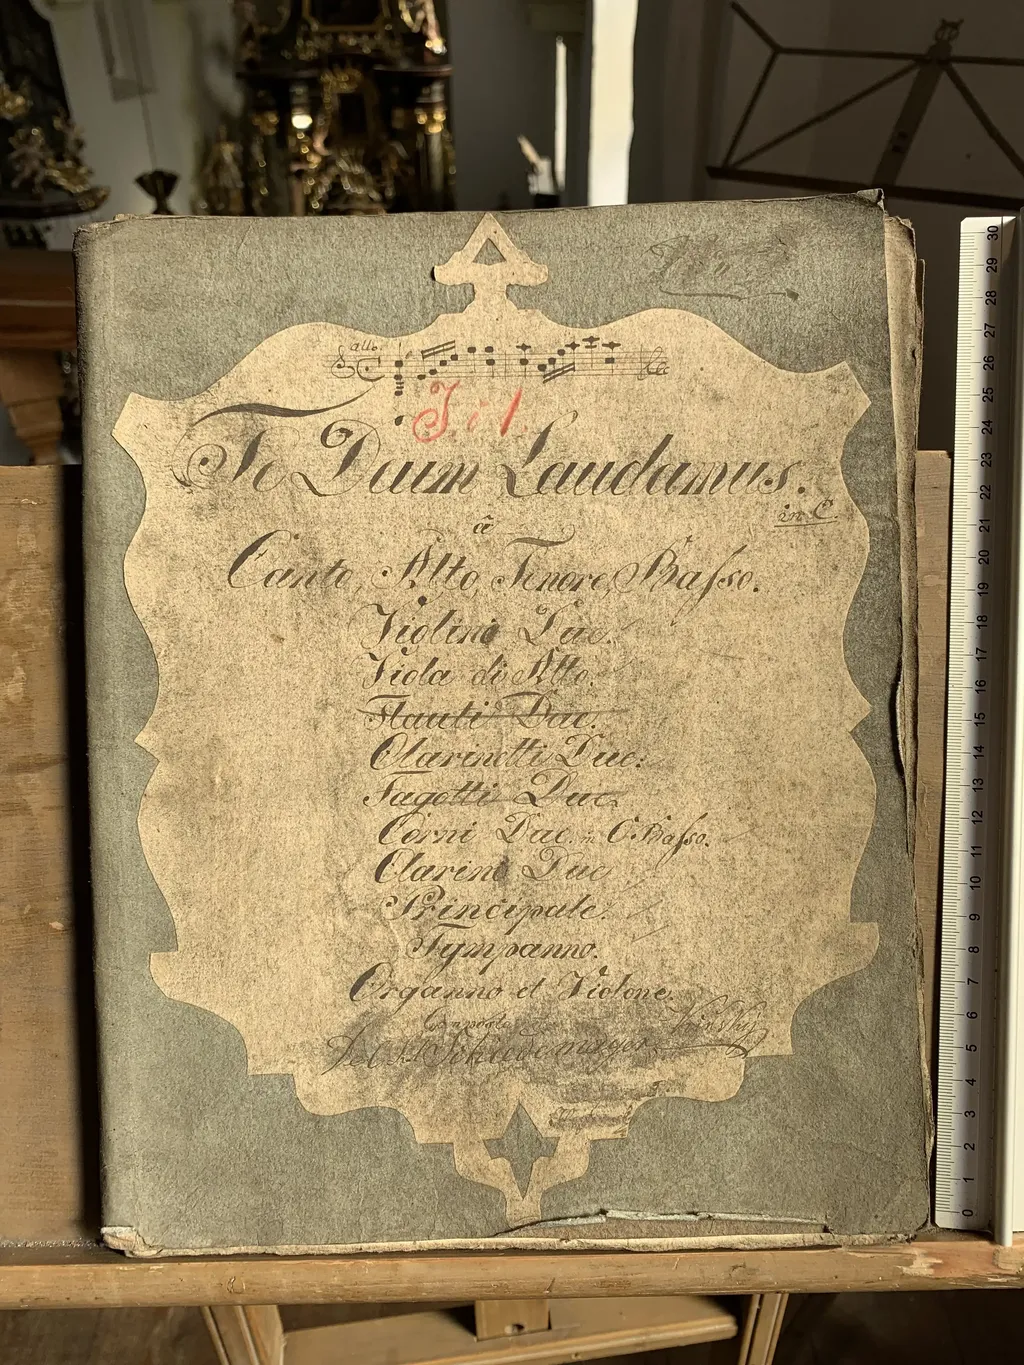 allo
T i 1.
Te Deum Laudamus.
in C.
â
Canto, Alto, Tenore, Basso.
Violino Due.
Viola di Alto.
Flauti Due.
Clarinetti Due.
Fagotti Due.
Corni Due. in C. Basso.
Clarini Due
Principale.
Tympanno.
Organno et Violone.
Schiedermayer
30
29
28
27
26
25
24
23
22
21
20
19
18
17
16
15
14
13
12
11
10
9
8
7
6
5
4
3
2
1
0